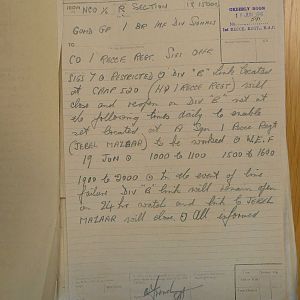 FROM NCO i/c R SECTION 18 1500
GOMD GP 1 BR INF DIV SIGNALS
TO
CO 1 RECCE REGT. SIGS OFFR
ORDERLY ROOM
1st RECCE REGT.
SIGS 70 RESTRICTED ⊙ DIV "B" link located
at CAMP 520 (HQ 1 RECCE REGT) will
close and reopen on DIV "B" net at
the following times daily to enable
set located at A Sqn 1 Recce Regt
(JEBEL MAZAAR) to be worked ⊙ W.E.F
19 JUN ⊙ 1000 to 1100 1500 to 1600
1900 to 2000 ⊙ In the event of line
failure DIV "B" link will remain open
on 24 hr watch and link to JEBEL
MAZAAR will close ⊙ All informed